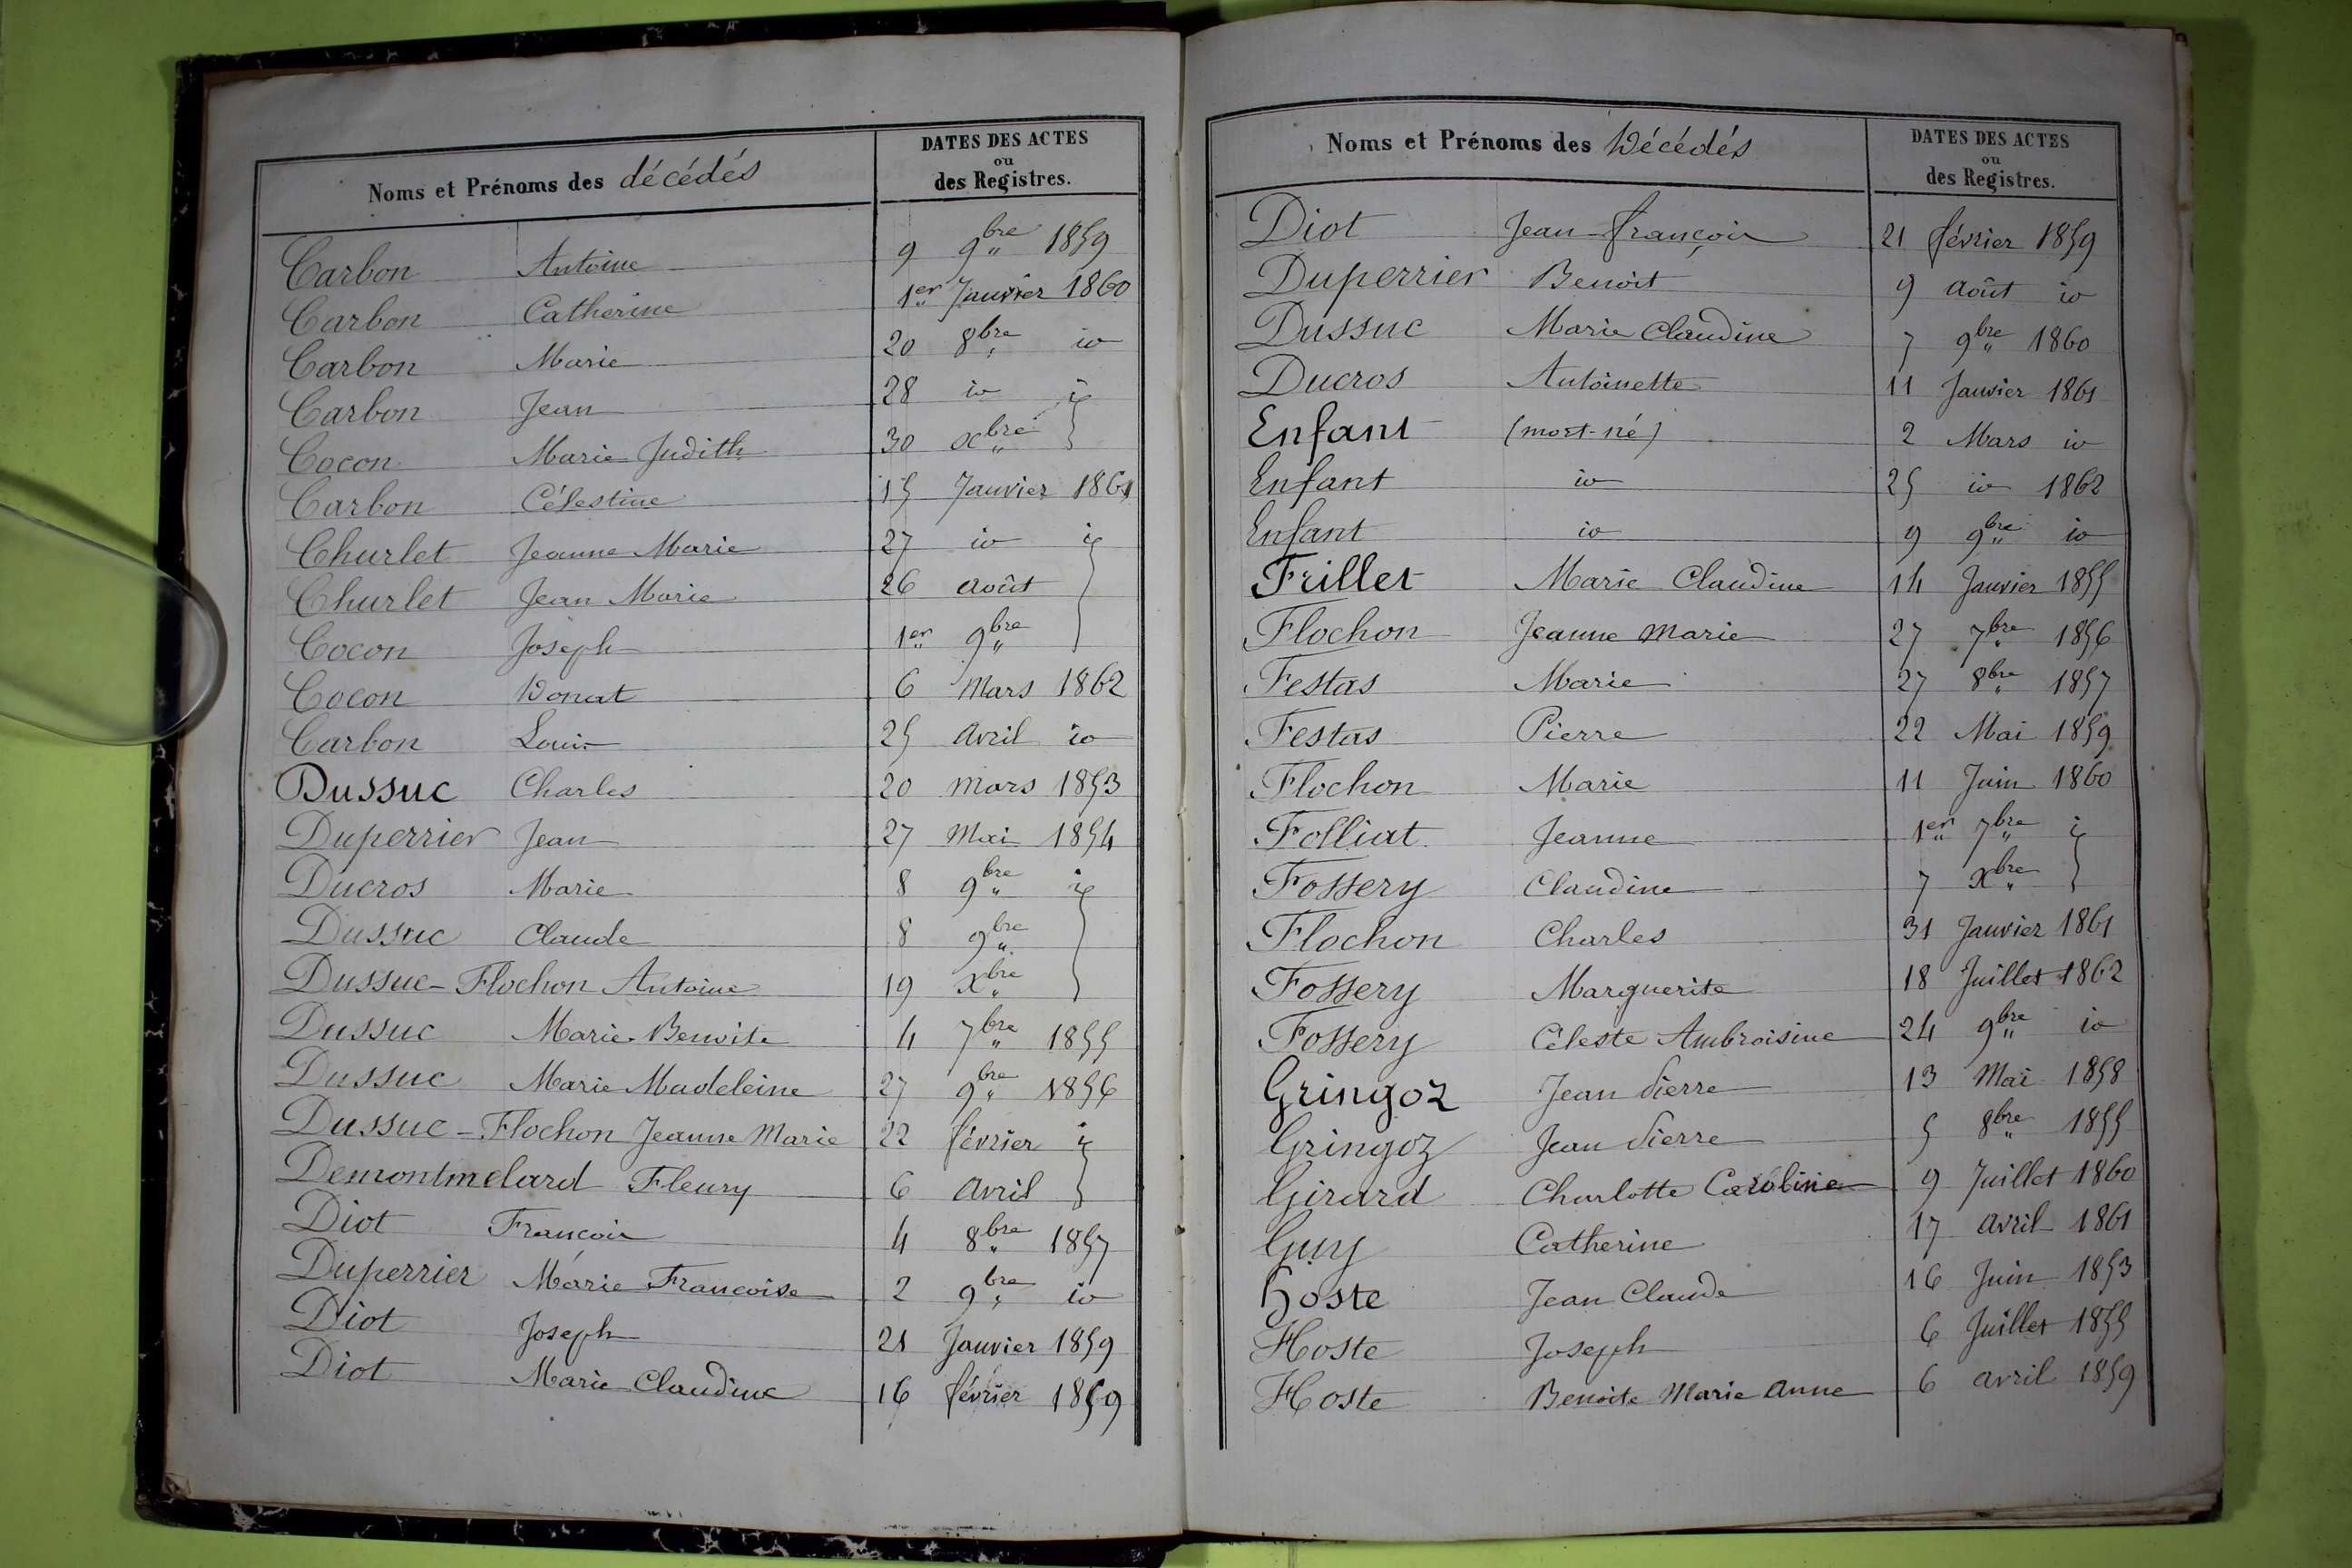 Noms et Prénoms des décédés DATES DES ACTES ou des Registres.
Carbon Antoine 9 9bre 1859
Carbon Catherine 1er Janvier 1860
Carbon Marie 20 8bre io
Carbon Jean 28 io
Cocon Marie Judith 30 xbre
Carbon Célestine 15 Janvier 1861
Churlet Jeanne Marie 27 io
Churlet Jean Marie 26 août
Cocon Joseph 1er 9bre
Cocon Donat 6 Mars 1862
Carbon Louis 25 avril io
Dussuc Charles 20 mars 1853
Duperrier Jean 27 Mai 1854
Ducros Marie 8 9bre
Dussuc Claude 8 9bre
Dussuc-Flochon Antoine 19 xbre
Dussuc Marie Benoite 4 7bre 1855
Dussuc Marie Madeleine 27 9bre 1856
Dussuc-Flochon Jeanne Marie 22 février
Demontmelard Fleury 6 avril
Diot Francois 4 8bre 1857
Duperrier Marie Francoise 2 9bre io
Diot Joseph 21 Janvier 1859
Diot Marie Claudine 16 février 1859
Noms et Prénoms des Décédés DATES DES ACTES ou des Registres.
Diot Jean-françois 21 février 1859
Duperrier Benoit 9 août io
Dussuc Marie Claudine 7 9bre 1860
Ducros Antoinette 11 Janvier 1861
Enfant (mort-né) 2 Mars io
Enfant io 25 io 1862
Enfant io 9 9bre io
Frillet Marie Claudine 14 Janvier 1855
Flochon Jeanne Marie 27 7bre 1856
Festas Marie 27 8bre 1857
Festas Pierre 22 Mai 1859
Flochon Marie 11 Juin 1860
Folliat Jeanne 1er 7bre
Fossery Claudine 7 xbre
Flochon Charles 31 Janvier 1861
Fossery Marguerite 18 Juillet 1862
Fossery Céleste Ambroisine 24 9bre io
Gringoz Jean Pierre 13 Mai 1858
Gringoz Jean Pierre 5 8bre 1855
Girard Charlotte Caroline 9 Juillet 1860
Guy Catherine 17 avril 1861
Hoste Jean Claude 16 Juin 1853
Hoste Joseph 6 Juillet 1855
Hoste Benoite Marie Anne 6 avril 1859